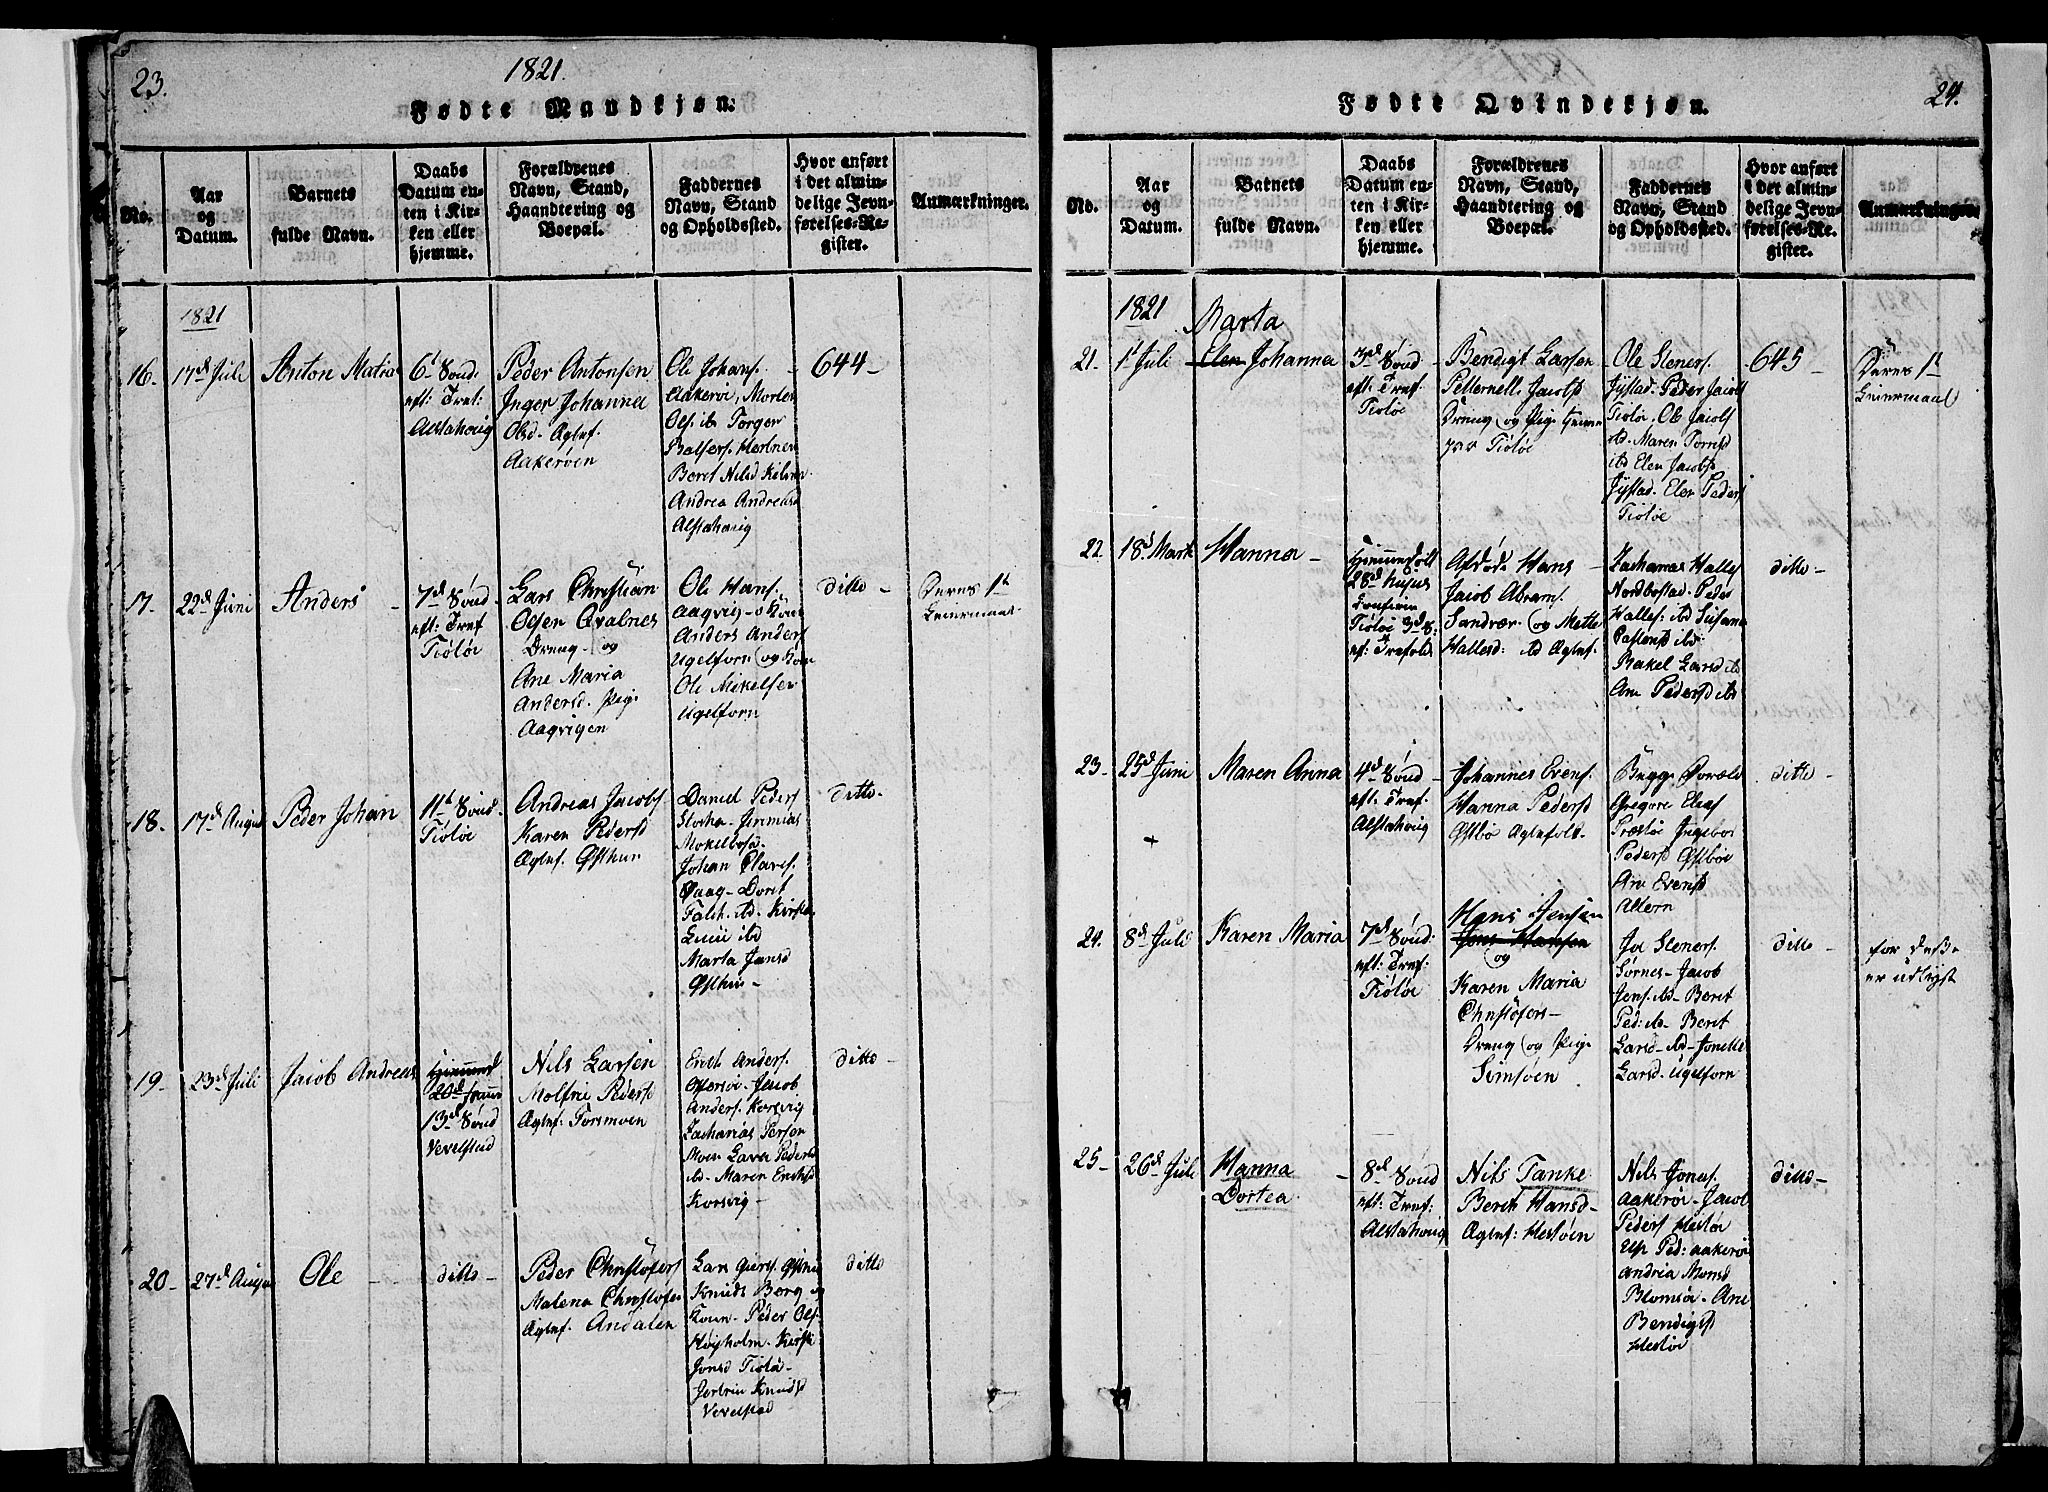 23.
1821.
Fødte Mandkjøn.
No.
Aar
og
Datum.
Barnets
fulde Navn.
Daabs
Datum en-
ten i Kir-
ken eller
hjemme.
Forældrenes
Navn, Stand,
Haandtering og
Boepæl.
Faddernes
Navn, Stand
og Opholdssted.
Hvor anført
i det almin-
delige Jevn-
førelses-Re-
gister.
Anmærkninger.
1821
16.
17d Juli
Anton Matias
6t Sønd.
eft: Tref:
Alstahoug
Peder Antonsen
Inger Johanna
Olsd. Aglef.
Aakerøen
Ole Johans.
Aakerøi, Morten
Ols. ib Torger
Balsers. Hestnes
Beret Nilsd
Andrea Andreasd
Alstahoug
644
17.
22d Juni
Anders
7d Sønd.
eft: Tref
Tiøtøe
Lars Christian
Olsen Qvalnes
Dreng og
Ane Maria
Andersd. Pige
Aagvigen
Ole Hans.
Aagvig
Anders Anders
Ugelforn og Kone
Ole Mikelsen
Ugelforn
ditto
Deres 1t
Leiermaal
18.
17d Augus
Peder Johan
11t Sønd.
Tiøtøe
Andreas Jacobs
Karen Pedersd
Aglef. Østhun
Daniel Peders
Jeremias
Mokelbosd.
Johan Olaves.
Vaag Dorit
Falch ib.
ibd
Marta Jansd
Østhun
ditto
19
23d Juli
Jacob Andreas
20d
13d Sønd
Vevelstad
Nils Larsen
Molfrie Pedersd
Aglef: Forsmoen
Erich Anders.
Jacob
Anders. Korsvig
Zacharias Persen
Moen Pedersd
ibd. Maren Erichsd
Korsvig
ditto
20
27d Augus
Ole
ditto
Peder Christofers
Malena Christofer
Aglef. Andalen
Lars Giers.
Knuds Borg og
Kone Peder Ols.
Høyholm.
Jonsd Tiøtø
Knudsd
Vevelstad
ditto
24.
Fødte Qvindekjøn.
No.
Aar
og
Datum.
Barnets
fulde Navn.
Daabs
Datum en-
ten i Kir-
ken eller
hjemme.
Forældrenes
Navn, Stand,
Haandtering og
Boepæl.
Faddernes
Navn, Stand
og Opholdssted.
Hvor anført
i det almin-
delige Jevn-
førelses-Re-
gister.
Anmærkninger
1821
21.
1t Juli
Marta
Elen Johanna
3d Sønd
eft: Tref
Tiøtøe
Bendigt Larsen
Petternell Jacobsd
Dreng og Pige
Tiøtøe
Ole Steners.
Peder Jacobs
Tiøtøe, Ole Jacobs
ibd. Maren
ibd Elen Jacobsd
Elen Peders
Tiøtøe
645
Deres 1t
Leiermaal
22
18d Mart
Hanna
28d
Tiøtøe 3d S:
ef: Trefoldi
Afdøde Hans
Jacob Abrams.
Sandvær og Mette
Hallesd: ib Aglef.
Zacharias Halles
Nordbostad. Peder
Halles: ibd Susanna
ibd.
Rakel Larsd ib
Ane Pedersd ib
ditto
23
25d Juni
Maren Anna
4d Sønd
eft: Tref.
Alstahoug
Johannes Evens.
Hanna Pedersd
Østbø Aglefolk
Bugge
Gregore Elias
Ingebor
Pedersd Østbøe
Ane Evensd
Altern
ditto
24.
8d Juli
Karen Maria
7d Sønd:
eft: Tref:
Tiøtøe
Hans Jensen
Jens Hansen
og
Karen Maria
Christofers
Dreng og Pige
Simsøen
Steners.
Sørnes Jacob
Jens. ibd Beret
Ped: ib. Beret
Larsd ibd Jonette
Larsd. Ugelforn
ditto
for
er udlyst
25
26d Juli
Hanna
Dortea
8d Sønd
eft: Tref:
Alstahoug
Nils Tanke
Beret Hansd
Aglef: Hestøen
Nils Jonas.
Aakerøe Jacob
Peders Hestøe
Els Ped: Aakerøe
Andrea Monsd
Blomsøe Ane
Bendigtsd
Hestøe
ditto